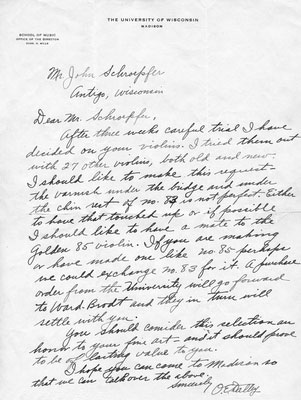 THE UNIVERSITY OF WISCONSIN
MADISON
SCHOOL OF MUSIC
OFFICE OF THE DIRECTOR
Mr. John Schroepfer
Antigo, Wisconsin
Dear Mr. Schroepfer,
After three weeks careful trial I have
decided on your violins. I tried them out
with 27 other violins, both old and new.
I should like to make this request—
the varnish under the bridge and under
the chin rest of no. 83 is not perfect. Either
to have that touched up or if possible
I should like to have a mate to the
Golden 85 violin. If you are making
or have made one like no. 85 perhaps
we could exchange no. 83 for it. A purchase
order from the University will go forward
to Ward-Brodt and they in turn will
settle with you.
You should consider this selection an
honor to your fine art – and it should prove
to be of lasting value to you.
I hope you can come to Madison so
that we can talk over the above.
Sincerely